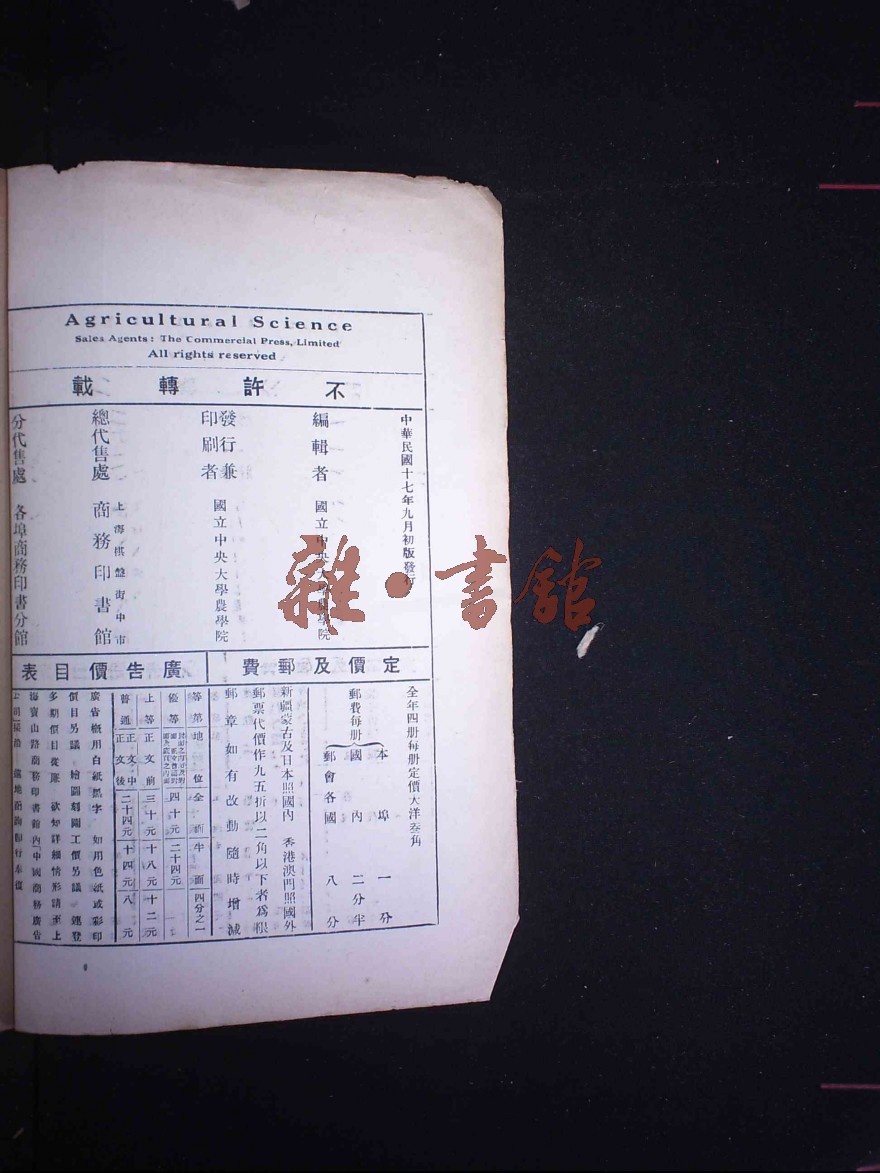 Agricultural Science
Sales Agents: The Commercial Press, Limited
All rights reserved
不許轉載
中華民國十七年九月初版發行
編輯者 國立中央大學農學院
發行兼印刷者 國立中央大學農學院
總代售處 上海棋盤街中市 商務印書館
分代售處 各埠商務印書分館
定價及郵費
全年四册每册定價大洋叁角
郵費每册
本埠 一分
國內 二分半
郵會各國 八分
新疆蒙古及日本照國內 香港澳門照國外
郵票代價作九五折以二角以下者為限
郵章如有改動隨時增減
廣告價目表
等第 地位 全面 半面 四分之一
優等 四十元 二十四元
上等 正文前 三十元 十八元 十二元
普通 正文中 正文後 二十四元 十四元 八元
廣告概用白紙黑字 如用色紙或彩印
價目另議 繪圖刻圖工價另議 連登
多期價目從廉 欲知詳細情形請至上
海寶山路商務印書館內「中國商務廣告
雜·書館